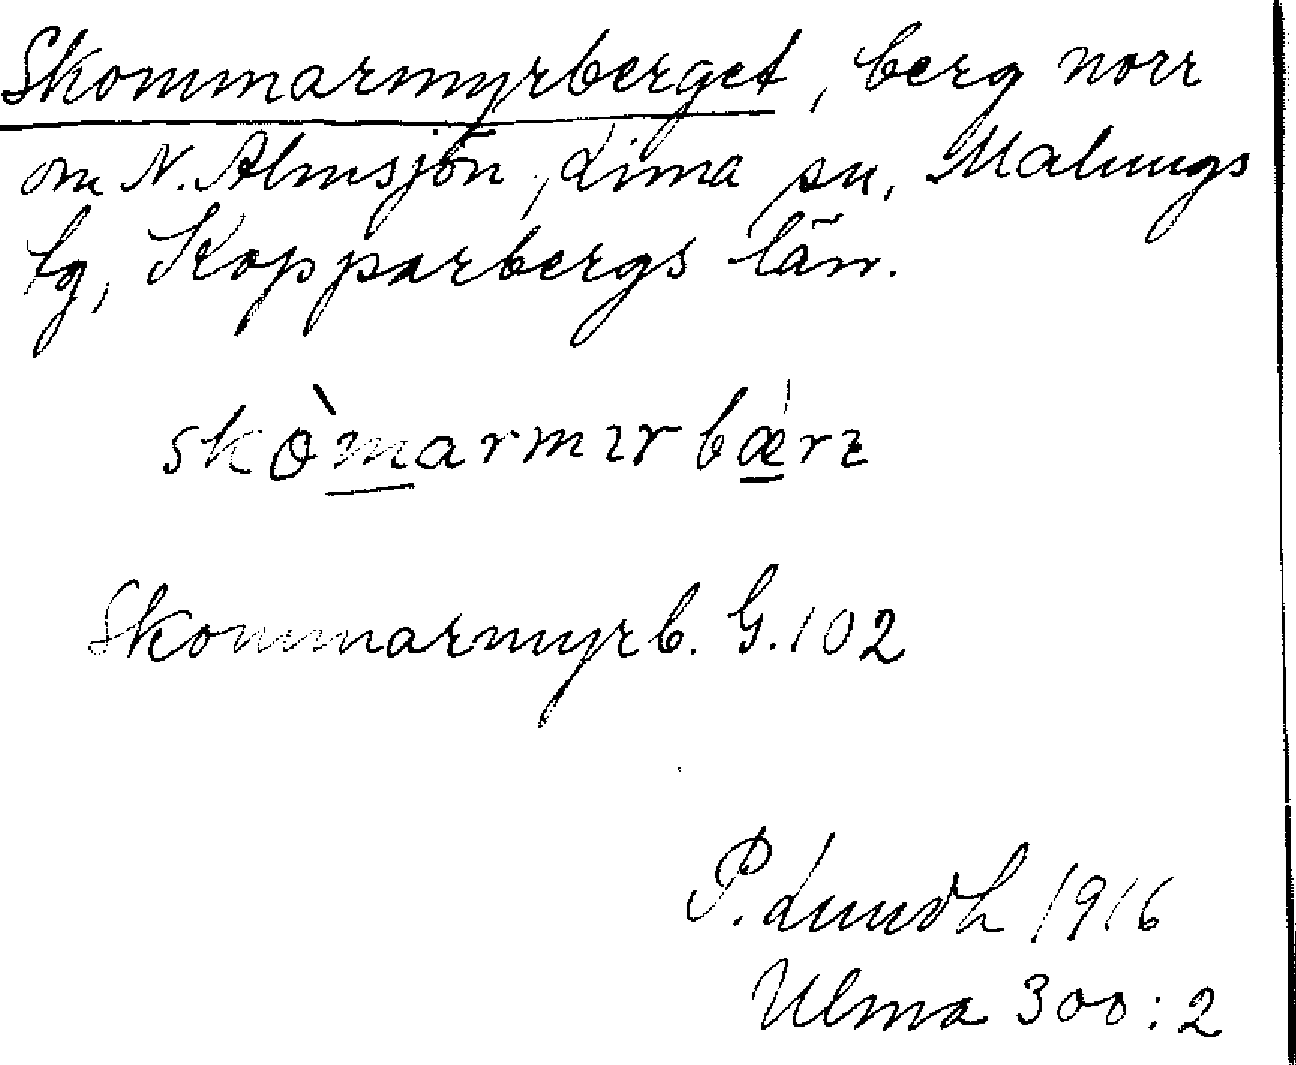 Skommarmyrberget, berg norr
om N. Almsjön, Lima sn, Malungs
tg, Kopparbergs län.
skòmarmırbǽrı
Skommarmyrb. G. 102
P. Lundh 1916
Ulma 300:2